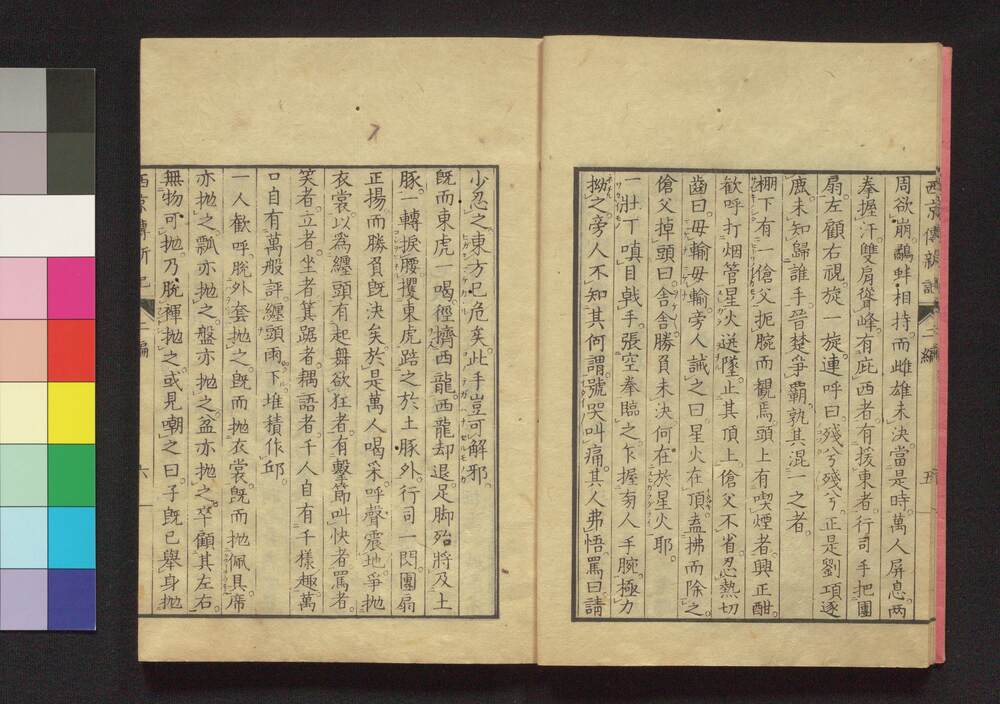 西京傳新記 二編 五
周欲崩。鷸蚌相持。而雌雄未決。當是時。萬人屏息。兩
拳握汗。雙肩聳峰。有庇西者。有援東者。行司手把團
扇。左顧右視。旋一旋。連呼曰。殘兮殘兮。正是劉項逐
鹿。未知歸誰手。晉楚爭霸。孰其混一之者。
棚下有一傖父。扼腕而觀焉。頭上有喫煙者。興正酣。
歡呼打烟管。星火迸墜。正其頂上。傖父不省。忍熱切
齒曰。毋輸毋輸。旁人誡之曰。星火在頂。盍拂而除之。
傖父掉頭曰。舍舍。勝負未決。何在於星火耶。
一壯丁嗔目戟手。張空拳臨之。乍握旁人手腕。極力
拗之。旁人不知其何謂。號哭叫痛。其人弗悟。罵曰。請
少忍之。東方已危矣。此手豈可解邪。
既而東虎一喝。徑擠西龍。西龍却退。足脚殆將及土
豚。一轉捩腰。攫東虎踣之於土豚外。行司一閃。團扇
正揚。而勝負既決矣。於是萬人喝采。呼聲震地。爭抛
衣裳。以爲纏頭。有起舞欲狂者。有擊節叫快者。罵者。
笑者。立者。坐者。箕踞者。耦語者。千人自有千樣趣。萬
口自有萬般評。纏頭雨下。堆積作邱。
一人歡呼。脫外套抛之。既而抛衣裳。既而抛佩具。席
亦抛之。瓢亦抛之。盤亦抛之。盃亦抛之。卒顧其左右。
無物可抛。乃脫褌抛之。或見嘲之曰。子既已舉身抛
西京傳新記 二編 六